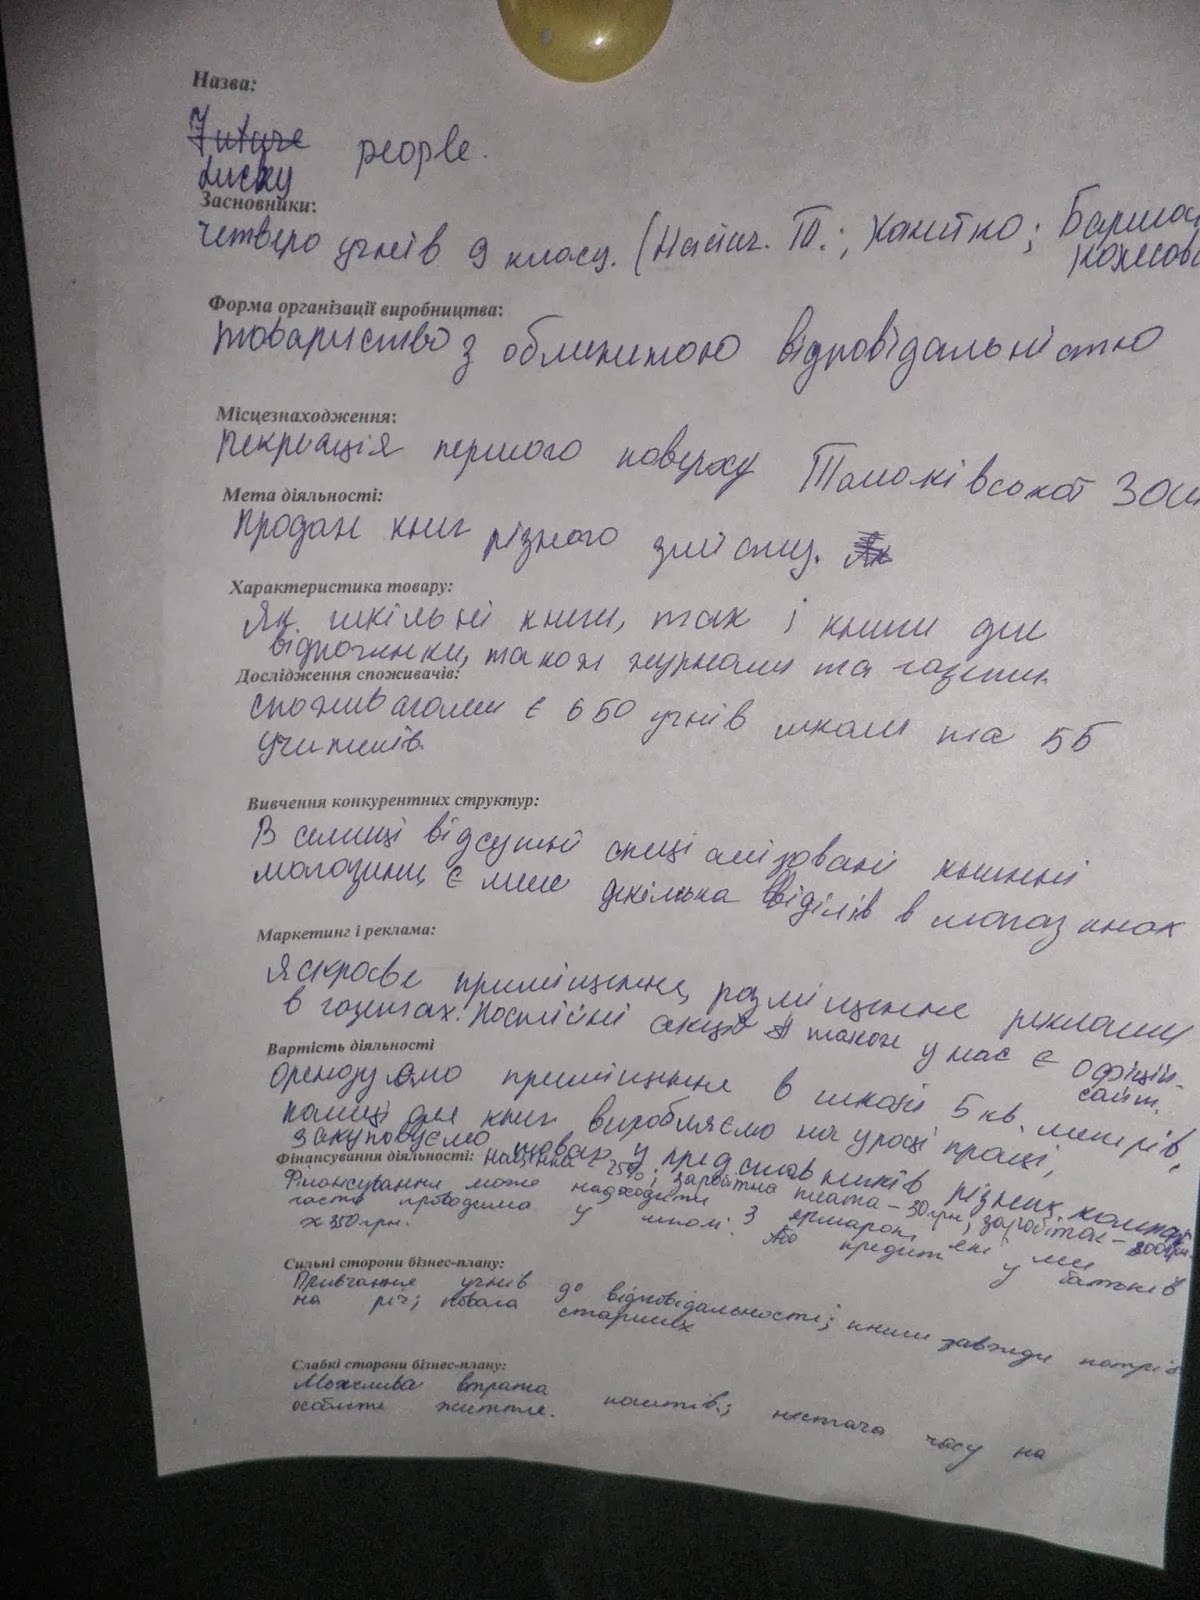 Назва:
Future people.
Lucky
Засновники:
четверо учнів 9 класу. (
Форма організації виробництва:
товариство з обмеженою відповідальністю
Місцезнаходження:
рекреація першого поверху Томаківської ЗОШ
Мета діяльності:
продаж книг різного змісту.
Характеристика товару:
Як шкільні книги, так і книги для
відпочинку, також журнали та газети.
Дослідження споживачів:
споживачами є 650 учнів школи та 55
учителів.
Вивчення конкурентних структур:
В селищі відсутні спеціалізовані книжні
магазини, є лише декілька відділів в магазинах
Маркетинг і реклама:
Яскраве приміщення, розміщення реклами
в газетах. Постійні акції також у нас є офіцій-
сайт.
Вартість діяльності
орендуємо приміщення в школі 5 кв. метрів,
полиці для книг виробляємо на уроці праці,
закуповуємо товар у представників різних
Фінансування діяльності: націнка - 25%; заробітна плата - 30 грн; заробіток -
Фінансування може надходити з ярмарок, які ми
часто проводимо у школі. Або кредит у батьків
х 350 грн.
Сильні сторони бізнес-плану:
Привчання учнів до відповідальності; книги завжди потріб
на річ; повага старших
Слабкі сторони бізнес-плану:
Можлива втрата коштів; нестача часу на
особисте життя.